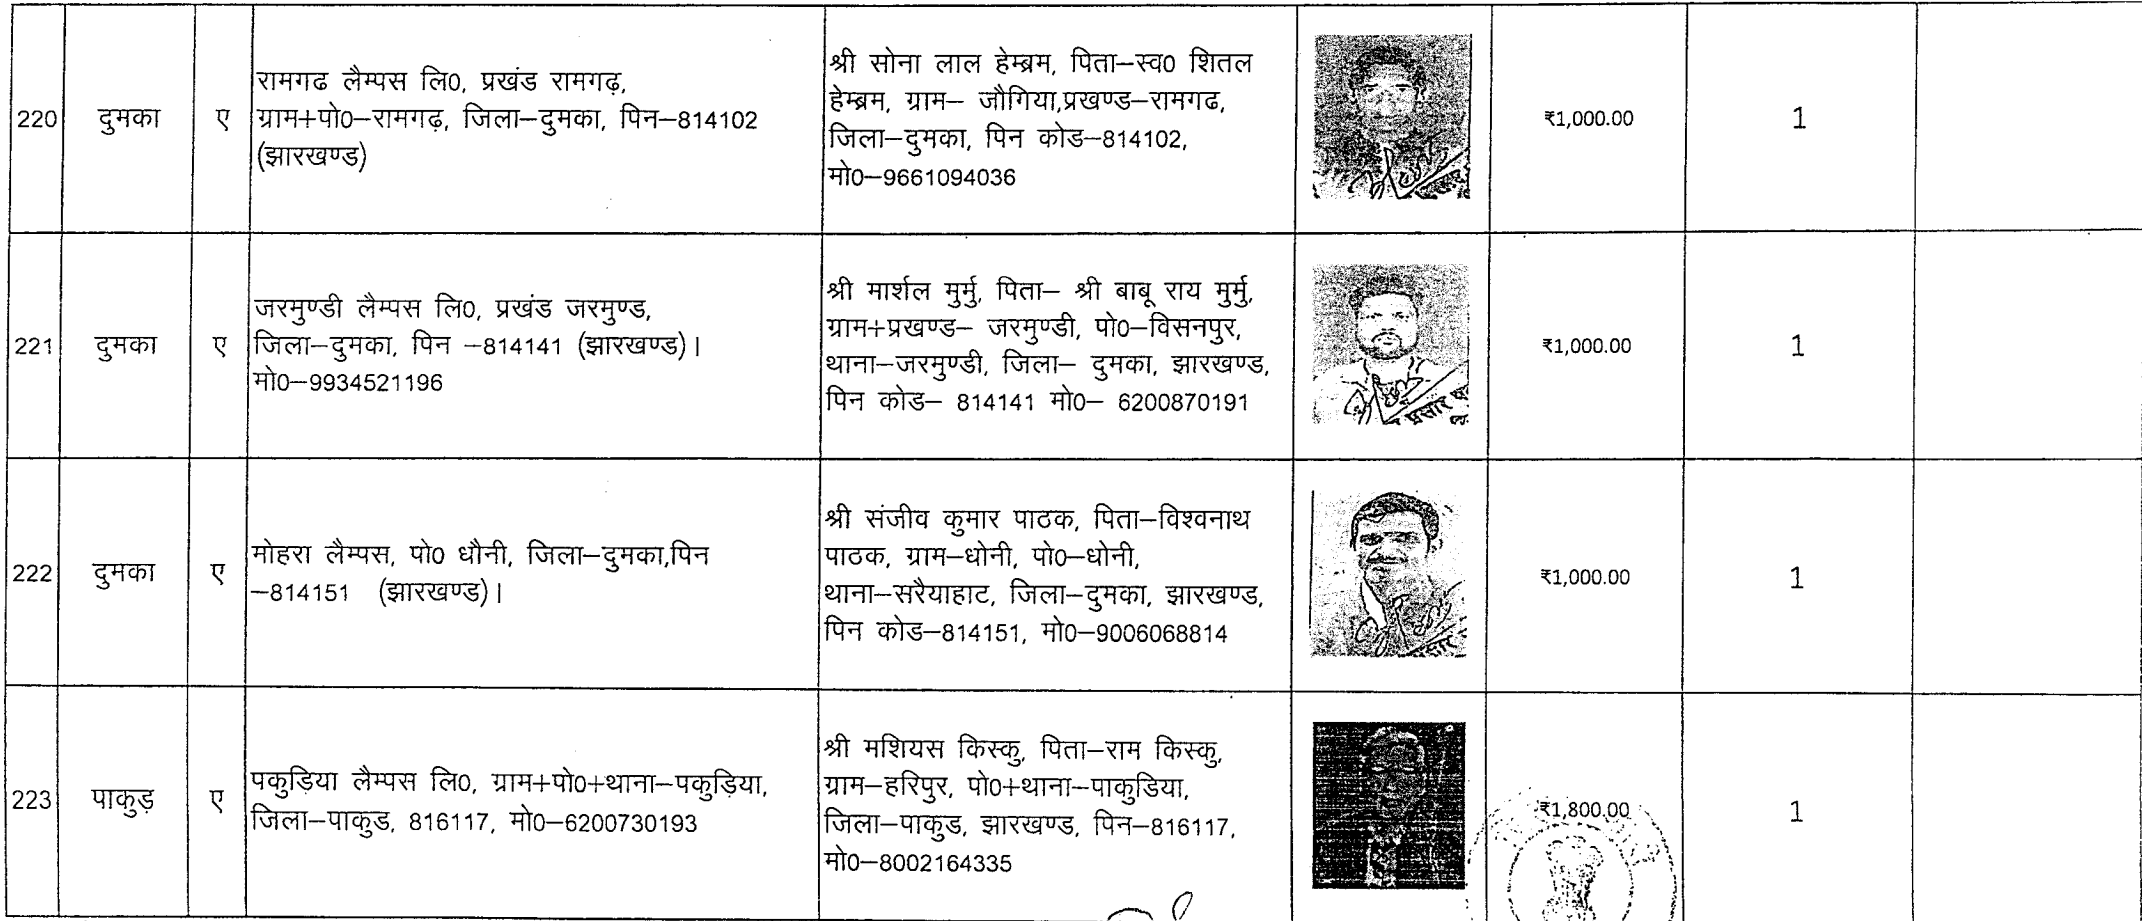 220
दुमका
ए
रामगढ लैम्पस लि0, प्रखंड रामगढ़,
ग्राम+पो0–रामगढ़, जिला–दुमका, पिन–814102
(झारखण्ड)
श्री सोना लाल हेम्ब्रम, पिता–स्व0 शितल
हेम्ब्रम, ग्राम– जौगिया,प्रखण्ड–रामगढ,
जिला–दुमका, पिन कोड–814102,
मो0–9661094036
₹1,000.00
1
221
दुमका
ए
जरमुण्डी लैम्पस लि0, प्रखंड जरमुण्ड,
जिला–दुमका, पिन –814141 (झारखण्ड)।
मो0–9934521196
श्री मार्शल मुर्मु, पिता– श्री बाबू राय मुर्मु,
ग्राम+प्रखण्ड– जरमुण्डी, पो0–विसनपुर,
थाना–जरमुण्डी, जिला– दुमका, झारखण्ड,
पिन कोड– 814141 मो0– 6200870191
₹1,000.00
1
222
दुमका
ए
मोहरा लैम्पस, पो0 धौनी, जिला–दुमका,पिन
–814151 (झारखण्ड)।
श्री संजीव कुमार पाठक, पिता–विश्वनाथ
पाठक, ग्राम–धोनी, पो0–धोनी,
थाना–सरैयाहाट, जिला–दुमका, झारखण्ड,
पिन कोड–814151, मो0–9006068814
₹1,000.00
1
223
पाकुड़
ए
पकुड़िया लैम्पस लि0, ग्राम+पो0+थाना–पकुड़िया,
जिला–पाकुड, 816117, मो0–6200730193
श्री मशियस किस्कु, पिता–राम किस्कु,
ग्राम–हरिपुर, पो0+थाना–पाकुडिया,
जिला–पाकुड, झारखण्ड, पिन–816117,
मो0–8002164335
₹1,800.00
1